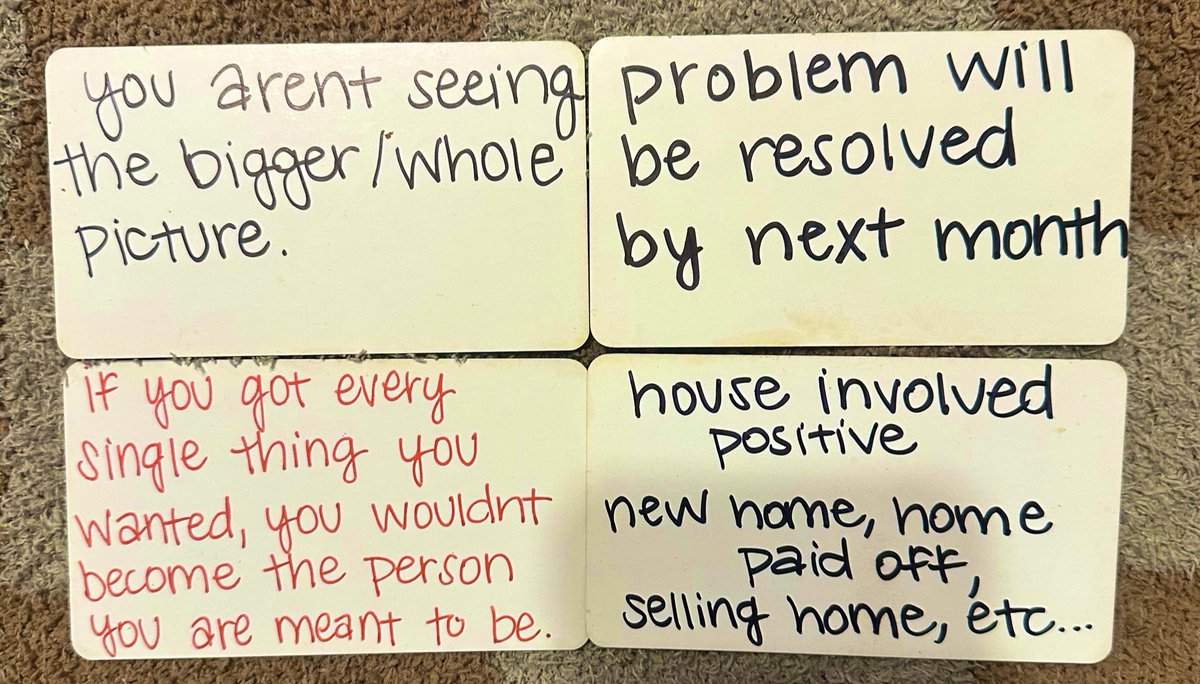 you arent seeing
the bigger/whole
picture.
problem will
be resolved
by next month
if you got every
single thing you
wanted, you wouldnt
become the person
you are meant to be.
house involved
positive
new home, home
paid off,
selling home, etc...